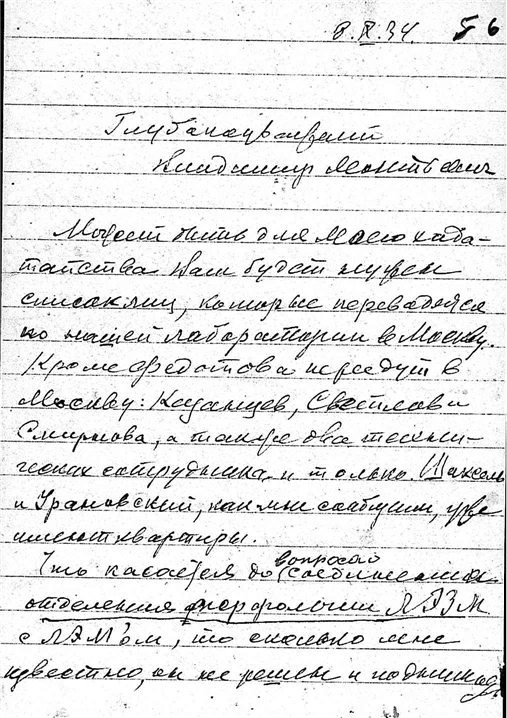 8.IX.34. 56
Глубокоуважаемый
Владимир Леонтьевич
Может быть для Моего хода-
тайства Вам будет нужен
список лиц, которые переводятся
по нашей лаборатории в Москву.
Кроме Федотова переедут в
Москву: Казанцев, Светлов и
Смирнова, а также два техни-
ческих сотрудника и только.
и Урановский, как мне сообщили, уже
имеют квартиры.
Что касается до вопроса
отделения морфологии ЛЭЗМ
с ЛЭМ'ом, то сколько мне
известно, он не решен и